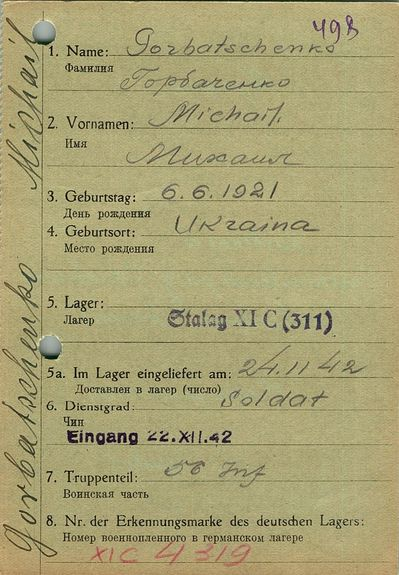 498
1. Name: Gorbatschenko
Фамилия
Горбаченко
2. Vornamen: Michail
Имя
Михаил
3. Geburtstag: 6.6.1921
День рождения
4. Geburtsort: Ukraina
Место рождения
5. Lager:
Лагер
Stalag XI C (311)
5a. Im Lager eingeliefert am: 24.11.42
Доставлен в лагер (число)
6. Dienstgrad: Soldat
Чин
Eingang 22.XII.42
7. Truppenteil: 56 Inf
Воинская часть
8. Nr. der Erkennungsmarke des deutschen Lagers:
Номер военнопленного в германском лагере
XI C 4319
Gorbatschenko Michail